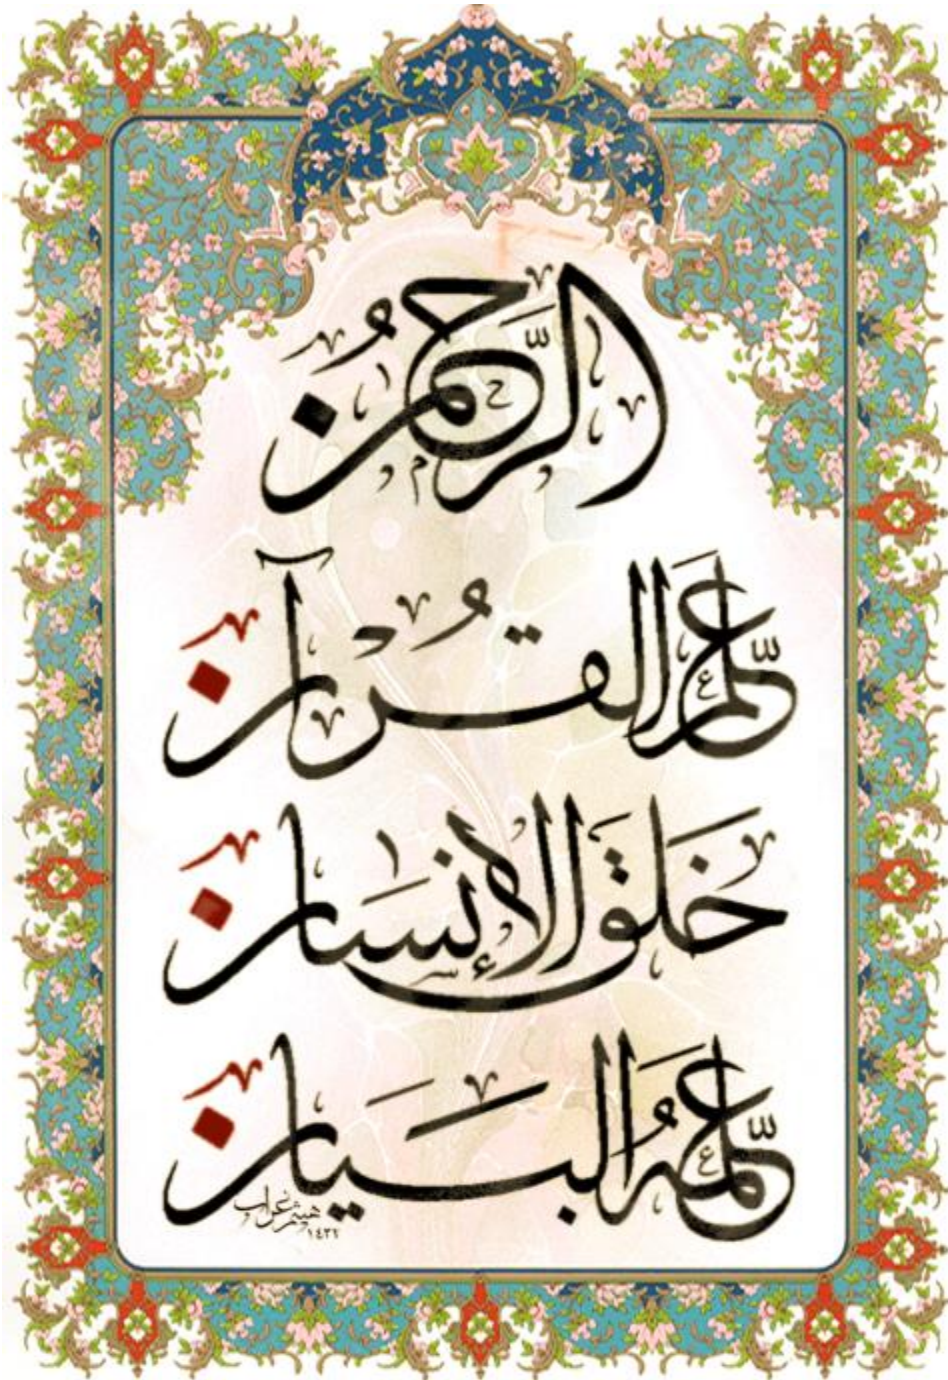 الرَّحْمٰنُ
عَلَّمَ الْقُرْآنَ
خَلَقَ الْإِنسَانَ
عَلَّمَهُ الْبَيَانَ
١٤٣٢